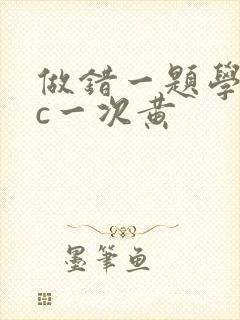 做錯一題學
c一次黃
墨筆魚